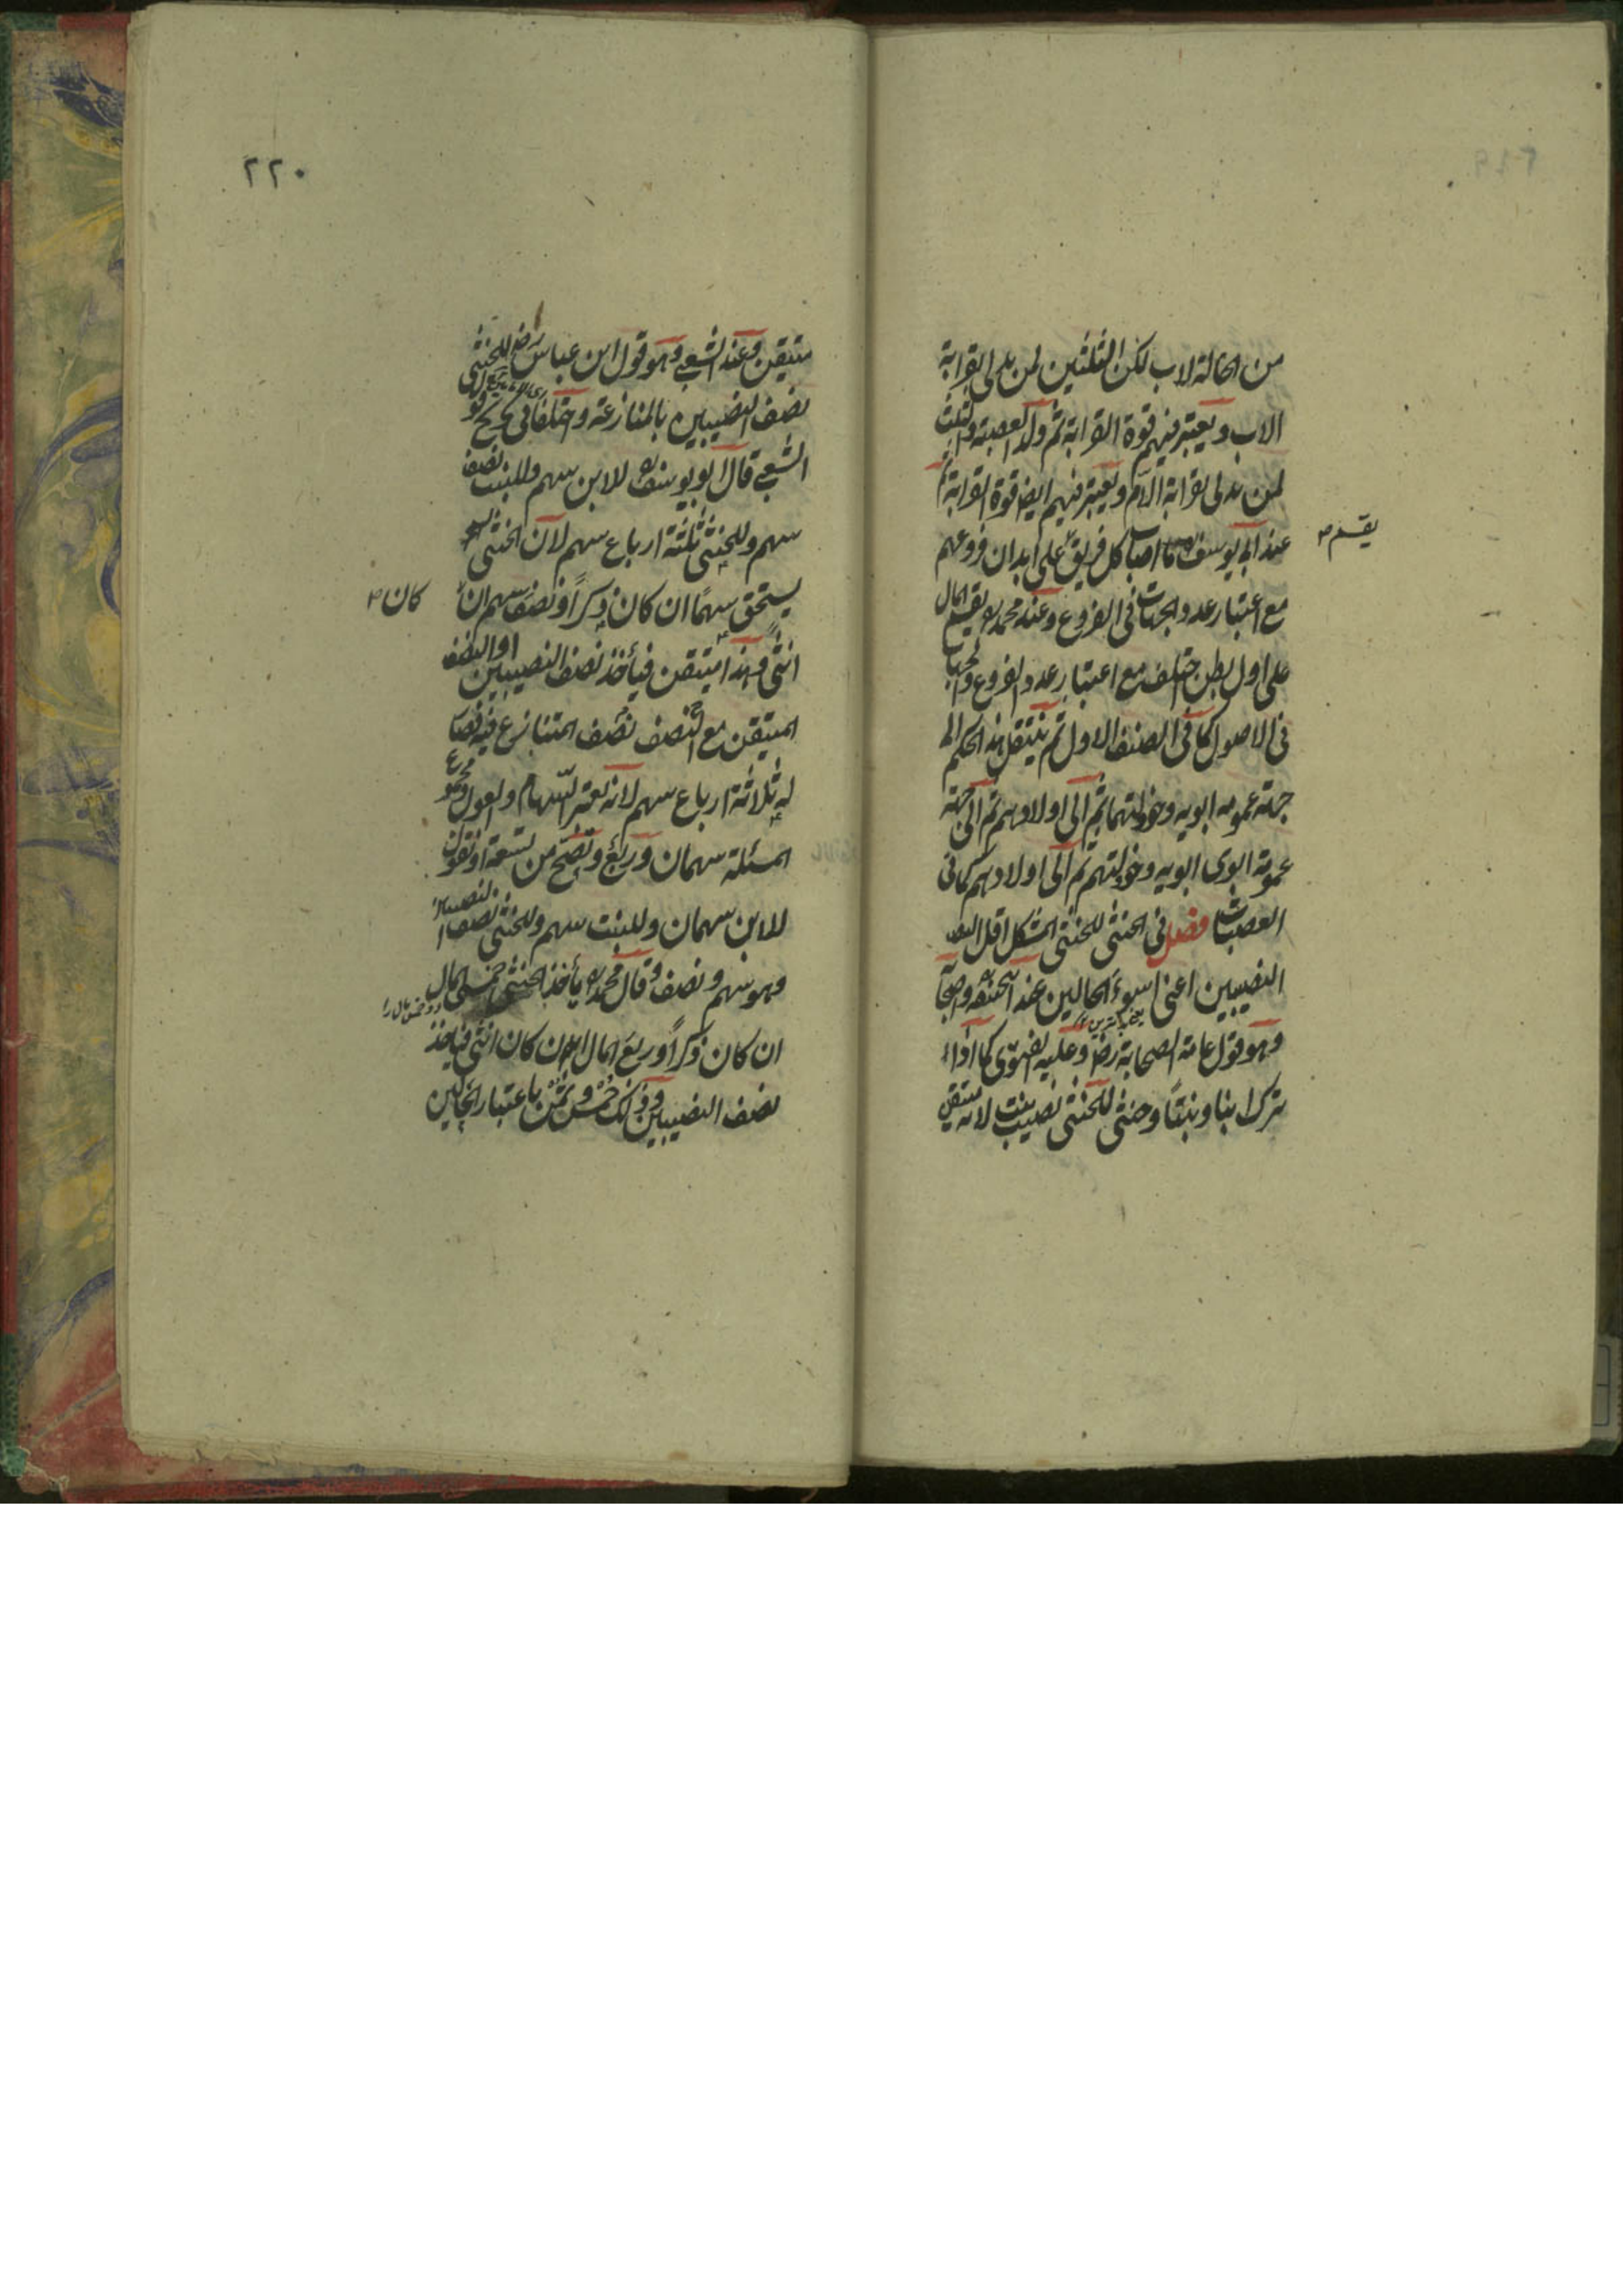 من الخالة لاب لكن الثلثين لمن يدلى بقرابة
الاب ويعتبر فيهم قوة القرابة ثم ولد العصبة والثلث
لمن يدلى بقرابة الام ويعتبر فيهم ايضا قوة القرابة ثم
عند ابى يوسف ما اصاب كل فريق على ابدان فروعهم
يقسم
مع اعتبار عدد الجهات فى الفروع وعند محمد يقسم المال
على اول بطن اختلف مع اعتبار عدد الفروع والجهات
فى الاصول كما فى الصنف الاول ثم ينتقل هذا الحكم الى
جهة عمومة ابويه وخؤلتهما ثم الى اولادهم ثم الى جهة
عمومة ابوى ابويه وخؤلتهم ثم الى اولادهم كما فى
العصبات فصل فى الخنثى للخنثى المشكل اقل
النصيبين اعنى اسوء الحالين عند ابيحنفه واصحابه
وهو قول عامة الصحابة رض وعليه الفتوى كما اذا
ترك ابنا وبنتا وخنثى للخنثى نصيب بنت لانه متيقن
٢٢٠
متيقن وعند الشعبى وهو قول ابن عباس رض للخنثى
نصف النصيبين بالمنازعة واختلفا فى تخريج قول
الشعبى قال ابو يوسف للابن سهم وللبنت نصف
سهم وللخنثى ثلثة ارباع سهم لان الخنثى
يستحق سهمًا ان كان ذكرًا ونصف سهم ان
كان
انثى وهذا متيقن فيأخذ نصف النصيبين او النصف
المتيقن مع نصف النصف المتنازع فيه فصار
له ثلاثة ارباع سهم لانه يعتبر السهام والعول ومجموع
المسئلة سهمان وربع وتصح من تسعة او نقول
للابن سهمان وللبنت سهم وللخنثى نصف النصيبين
وهو سهم ونصف وقال محمد يأخذ الخنثى خمسى المال
ان كان ذكرًا وربع المال ان كان انثى فيأخذ
نصف النصيبين وذلك خمس وثمن باعتبار الحالين